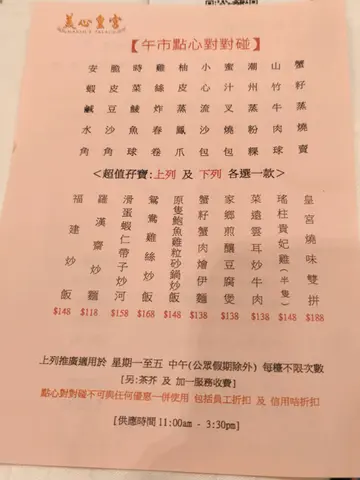 美心皇宮
MAXIM'S PALACE
【午市點心對對碰】
蟹籽蒸燒賣
山竹牛肉球
潮州蒸粉粿
蜜汁叉燒包
小心流沙包
柚皮蒸鳳爪
雞絲炸春卷
時菜鯪魚球
脆皮豆沙角
安蝦鹹水角
<超值孖寶:上列 及 下列 各選一款>
皇宮燒味雙拼
瑤柱貴妃雞(半隻)
菜遠雲耳炒牛肉
家鄉煎釀豆腐煲
蟹籽蟹肉燴伊麵
原隻鮑魚雞粒砂鍋炒飯
鴛鴦雞絲炒飯
滑蛋蝦仁帶子炒河
羅漢齋炒麵
福建炒飯
$148 $118 $158 $168 $148 $138 $138 $138 $148 $188
上列推廣適用於 星期一至五 中午(公眾假期除外) 每檯不限次數
[另:茶芥 及 加一服務收費]
點心對對碰不可與任何優惠一併使用 包括員工折扣 及 信用咭折扣
[供應時間 11:00am - 3:30pm]